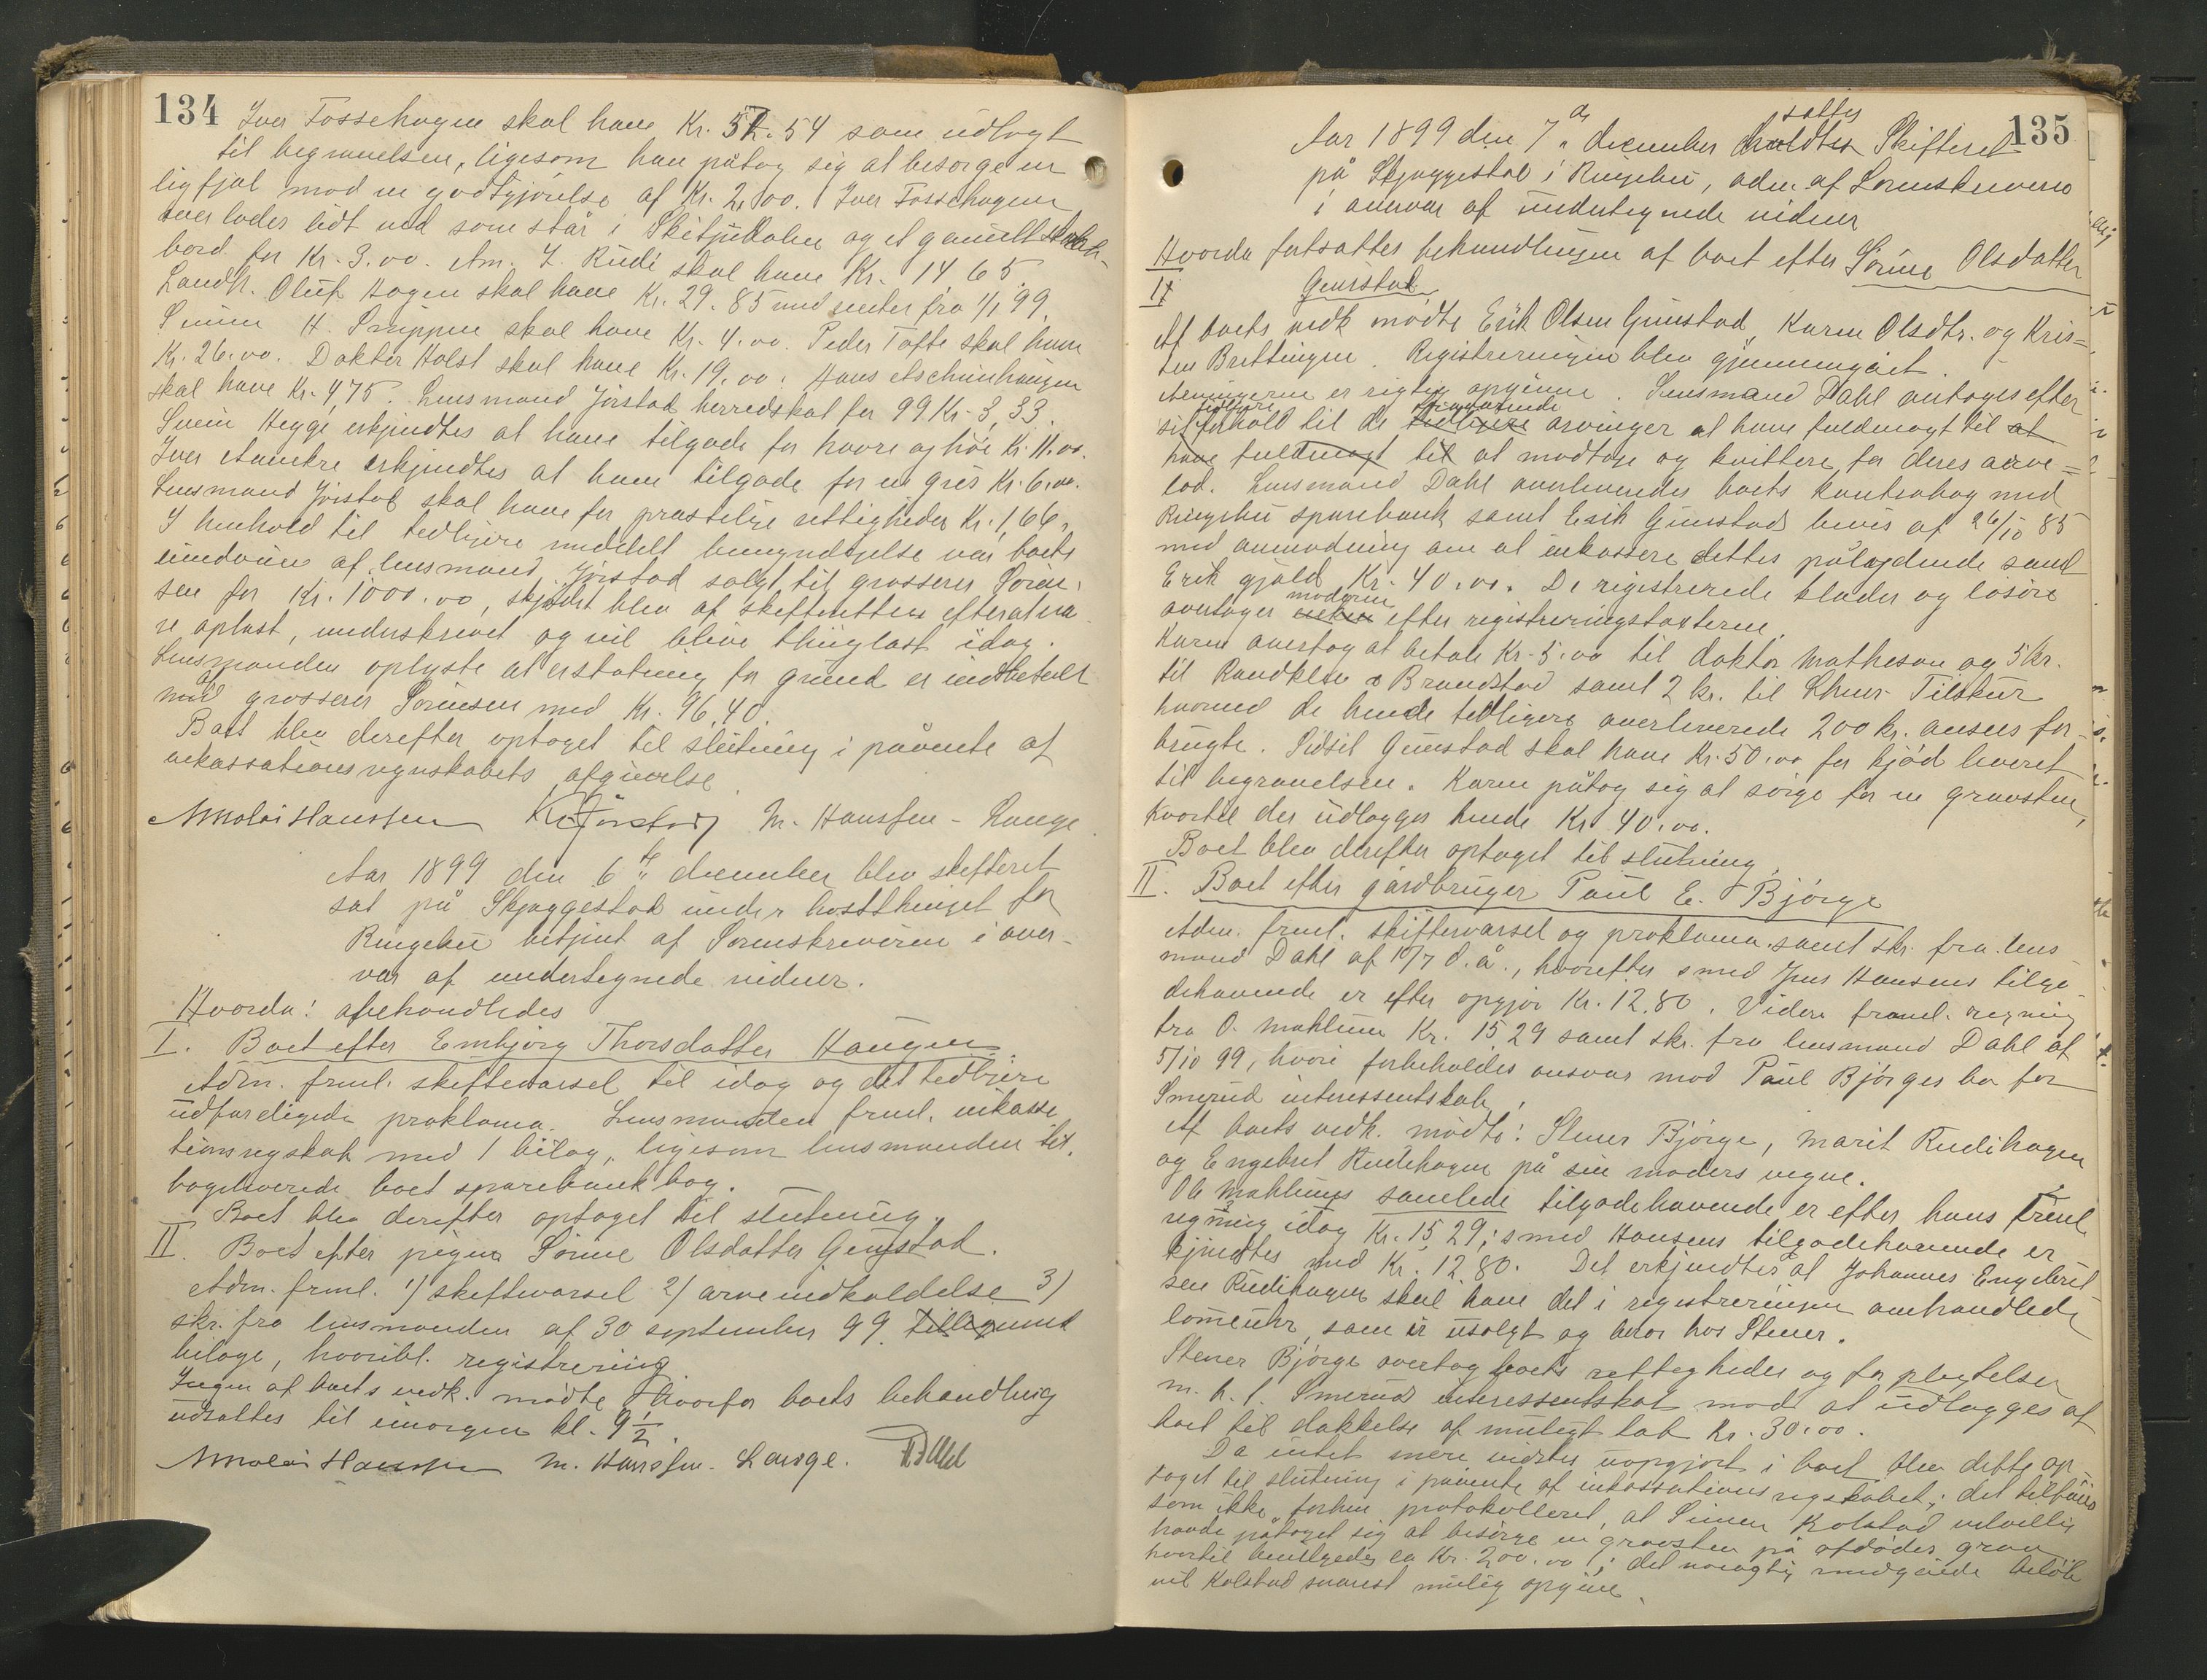 134
Iver Fossehagen skal have Kr. 52.54 som udlagt
til begravelsen, ligesom han påtog sig at besørge en
ligfjøl mod en godtgjørelse af Kr. 2.00. Iver Fossehagen
overlades lidt ved som står i Skitjudalen og et gammelt
bord for Kr. 3.00. Am. L. Rudi skal have Kr. 14 65.
Landh. Oluf Hagen skal have Kr. 29.85 med renter fra 1/1 99.
Simen H. skal have Kr. 4.00. Peder Tofte skal have
Kr. 26.00. Doktor Holst skal have Kr. 19.00. Hans Aschimhaugen
skal have Kr. 4,75. Lensmand Jørstad herredskat for 99 Kr. 3,33.
Svein Hegge erkjendtes at have tilgode for havre og hø Kr. 11.00.
Iver erkjendtes at have tilgode for en gris Kr. 6.00.
Lensmand Jørstad skal have for præstelige rettigheder Kr. 1,66.
I henhold til tedligere meddelt bemyndigelse var boets
eiendom af lensmand Jørstad solgt til grosserer Sørin-
sen for Kr. 1000.00, skjødet blev af skifteretten efterat væ-
re oplæst, underskrevet og vil blive thinglæst idag.
Lensmanden oplyste at erstatning for grund er indbetalt
af grosserer Sørinsen med Kr. 96.40.
Boet blev derefter optaget til slutning i påvente af
inkassationsregnskabets afgivelse
Nicolai Hanssen K. Jørstad M. Hanssen - Lange.
Aar 1899 den 6te december blev skifteret
sat på Skjæggestad under høstthinget for
Ringebu betjent af Sorenskriveren i over-
vær af undertegnede vidner.
Hvorda: afbehandledes
I. Boet efter Embjørg Thorsdatter Haugen
Adm. freml. skiftevarsel til idag og det tedligere
udfærdigede proklama. Lensmanden freml. inkassa-
tionsregskab med 1 bilag, ligesom lensmanden til-
bageleverede boet sparebankbog.
Boet blev derefter optaget til slutning.
II. Boet efter pigen Sørine Olsdatter Gunstad.
Adm. freml. 1) skiftevarsel 2) arveindkaldelse 3)
skr. fra lensmanden af 30 september 99
bilage, hvoribl. registrering
Ingen af boets vedk. mødte Hvorfor boets behandling
udsattes til imorgen kl. 9 1/2.
Nicolai Hanssen M. Hanssen - Lange. Dahl
135
Aar 1899 den 7de december sattes Skifteret
på Skjæggestad i Ringebu, adm. af Sorenskriveren
i overvær af undertegnede vidner
Hvorda fortsattes behandlingen af boet efter Sørine Olsdatter
II Gunstad
Af boets vedk mødte Erik Olsen Gunstad, Karen Olsdtr. og Kris-
ten Brettingen. Registreringen blev gjennemgået.
Arvingerne er rigtig opgivne. Lensmand Dahl antoges efter
sit tidligere forhold til de fraværende arvinger at have fuldmagt til at
have fuldmagt til at modtage og kvittere for deres arve-
lod. Lensmand Dahl overleveredes boets kontrabog med
Ringebu sparebank samt Erik Gunstads bevis af 26/10 85
med anmodning om at inkassere dettes pålydende samt
Erik gjæld Kr. 40.00. De registrerede klæder og løsøre
overtager moderen efter registreringstaxterne.
Karen overtog at betale Kr. 5.00 til doktor Matheson og 5 kr.
til Randklev & Brandstad samt 2 kr. til Tilskur
hvormed de hende tedligere overleverede 200 kr. ansees for-
brugte. Sidsil Gunstad skal have Kr. 50.00 for kjød leveret
til begravelsen. Karen påtog sig at sørge for en gravsten,
hvortil der udlægges hende Kr. 40.00.
Boet blev derefter optaget til slutning.
II. Boet efter gårdbruger Paul E. Bjørge
Adm. freml. skiftevarsel og proklama samt skr. fra lens-
mand Dahl af 10/7 d.å., hvorefter smed Jens Hansens tilgo-
dehavende er efter opgjør Kr. 12.80. Videre freml. regning
fra O. Mæhlum Kr. 15 29 samt skr. fra lensmand Dahl af
5/10 99, hvori forbeholdes ansvar mod Paul Bjørges bo for
Smerud interessentskab.
Af boets vedk. mødte: Stener Bjørge, Marit Rudihagen
og Engebret Rudihagen på sin moders vegne.
Ole Mæhlums samlede tilgodehavende er efter hans freml.
regning idag Kr. 15 29; smed Hansens tilgodehavende er-
kjendtes med Kr. 12 80. Det erkjendtes at Johannes Engebret-
sen Rudihagen skal have det i registreringen omhandlede
lommeuhr, som er usolgt og beror hos Stener.
Stener Bjørge overtog boets rettigheder og forpligtelser
m. h. t. Smerud interessentskab mod at udlægges af
boet til dækkelse af muligt tab Kr. 30.00.
Da intet mere vidstes uopgjort i boet blev dette op-
taget til slutning i påvente af inkassationsregskabet; det tilføies
som ikke forhen protokolleret, at Simen Kolstad velvillig
havde påtaget sig at besørge en gravsten på afdødes grav
hvortil bevilgedes ca Kr. 200.00; det nøiagtig medgåede beløb
vil Kolstad snarest mulig opgive.